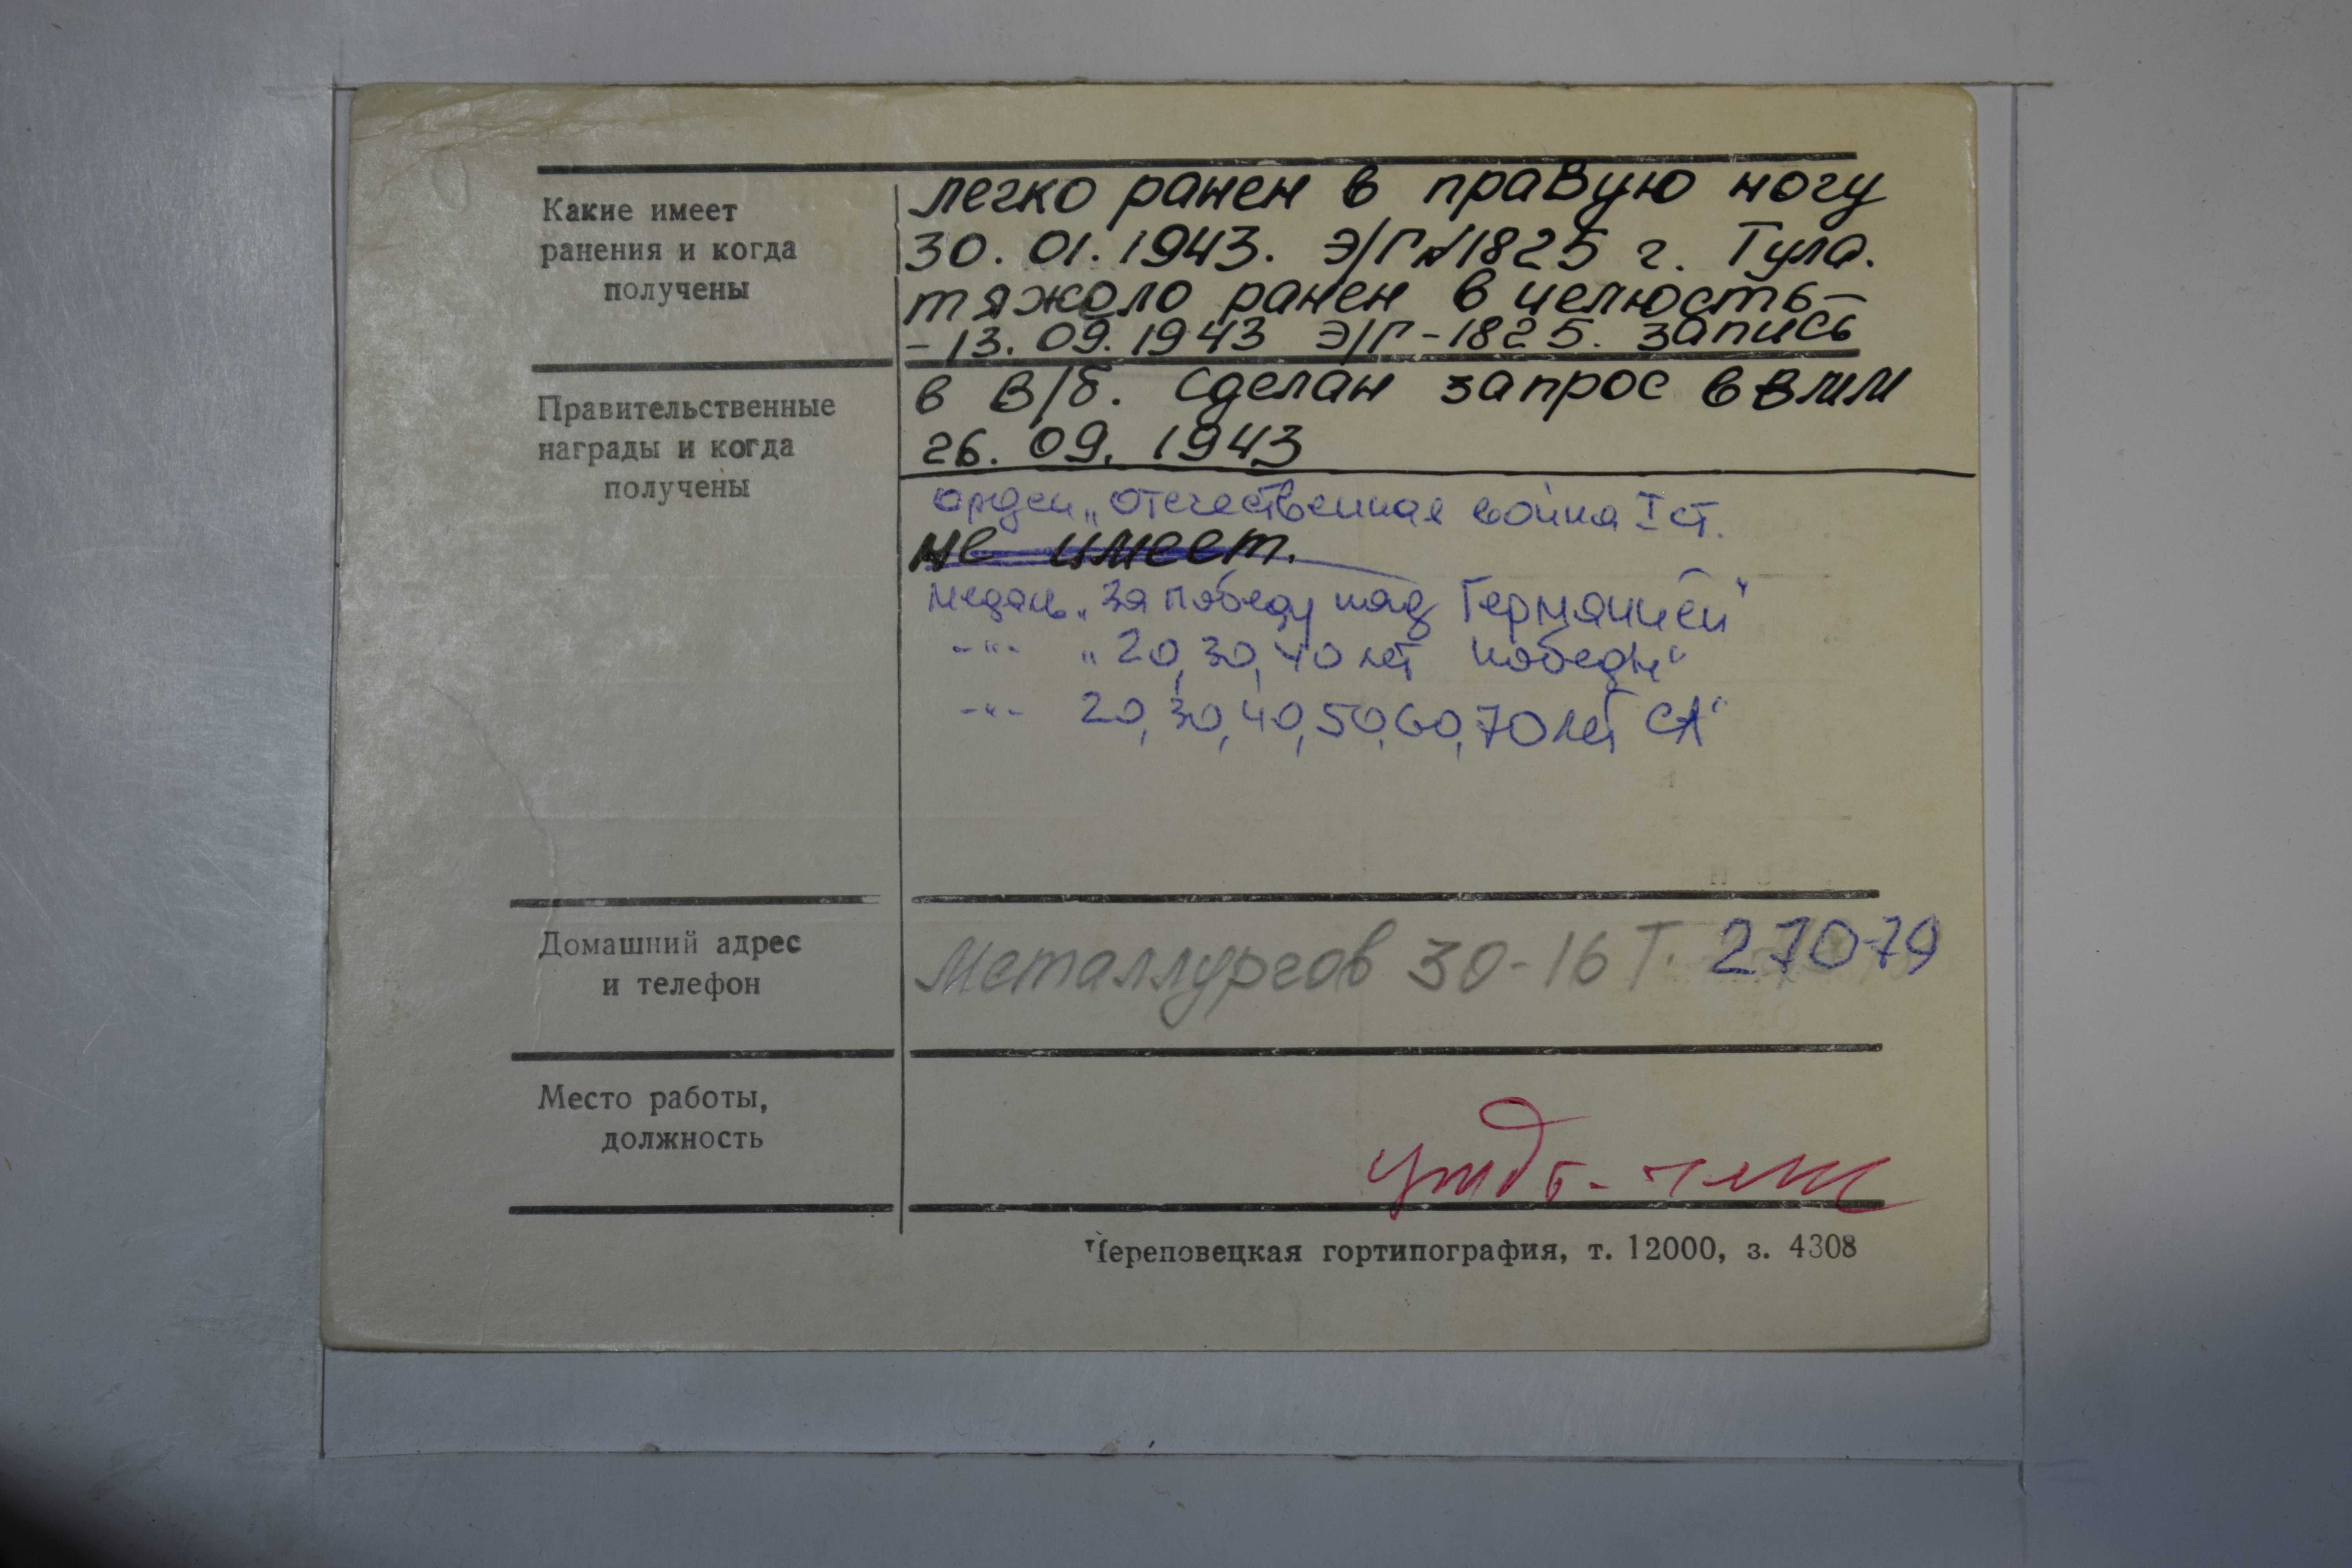 Какие имеет
ранения и когда
получены
легко ранен в правую ногу
30.01.1943. Э/Г№1825 г. Тула.
тяжоло ранен в челюсть-
-13.09.1943 Э/Г-1825. запись
в В/б. Сделан запрос в ВММ
26.09.1943
Правительственные
награды и когда
получены
орден „Отечественная война I ст.
не имеет.
медаль „За победу над Германией"
-"- „20, 30, 40 лет победы"
-"- 20, 30, 40, 50, 60, 70 лет СА"
Домашний адрес
и телефон
Металлургов 30-16 Т. 27079
Место работы,
должность
Череповецкая гортипография, т. 12000, з. 4308